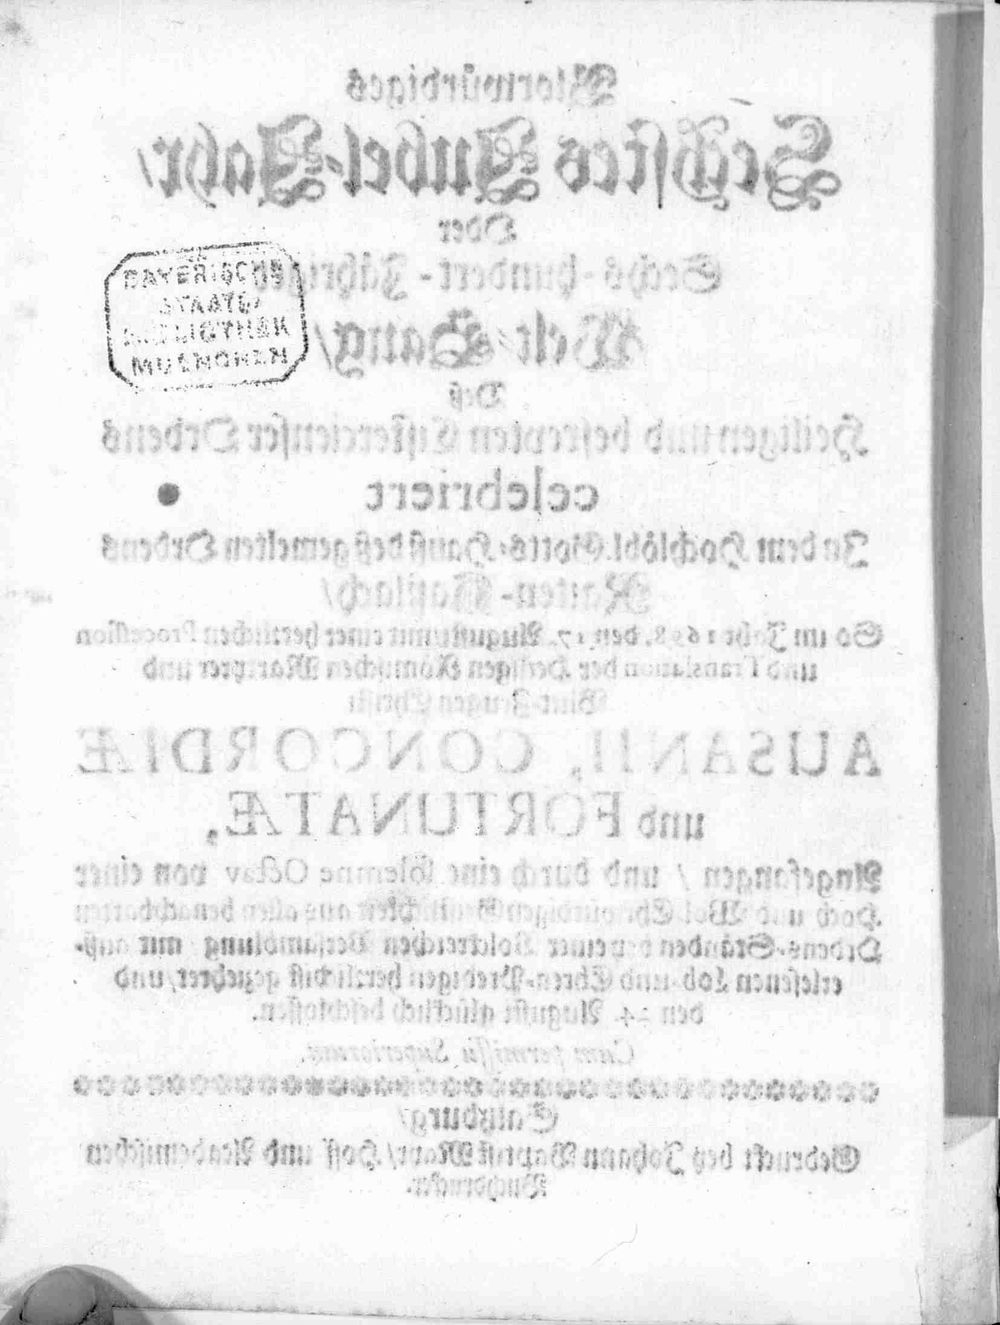 Sechstes Jubel-Jahr/
Oder
Sechs-hundert-Jähriger
Welt-Gang/
Deß
Heiligen und befreyten Cistercienser Ordens
celebriert
In dem Hochlöbl. Gotts-Hauß deß gemelten Ordens
Raiten-Haßlach/
So im Jahr 1698. den 17. Augusti mit einer herrlichen Procession
und Translation der Heiligen Römischen Martyrer und
Blut-Zeugen Christi
AUSANII, CONCORDIÆ
und FORTUNATÆ,
Angefangen / und durch eine solemne Octav von einer
Hoch und Wol-Ehrwürdigen Geistlichkeit aus allen benachbarten
Ordens-Ständen bey einer Volckreichen Versamblung mit auß-
erlesenen Lob und Ehren-Predigen herrlichist geziehret/und
den 24. Augusti glücklich beschlossen.
Cum permissu Superiorum.
Saltzburg/
Gedruckt bey Johann Baptist Mayr/Hoff und Academischen
Buchdrucker.
BAYERISCHE
STAATS-
BIBLIOTHEK
MUENCHEN